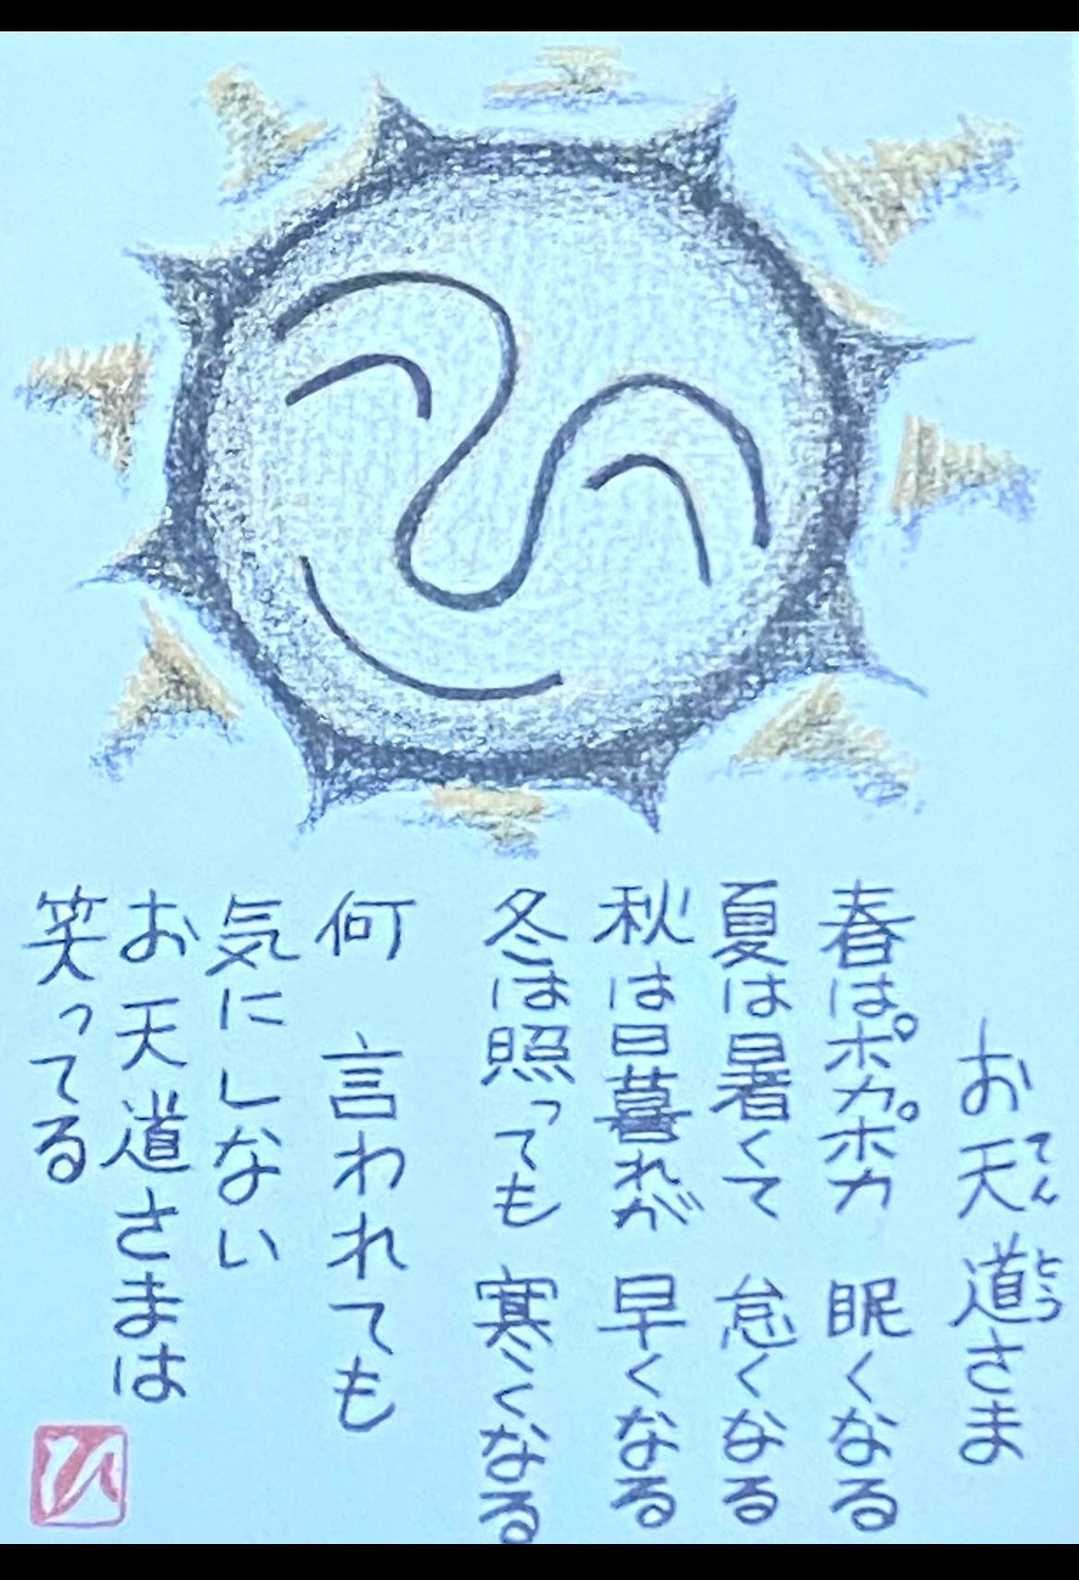 お天道さま
てんとう
春はポカポカ 眠くなる
夏は暑くて 怠くなる
秋は日暮れが 早くなる
冬は照っても 寒くなる
何 言われても
気にしない
お天道さまは
笑ってる
ひ